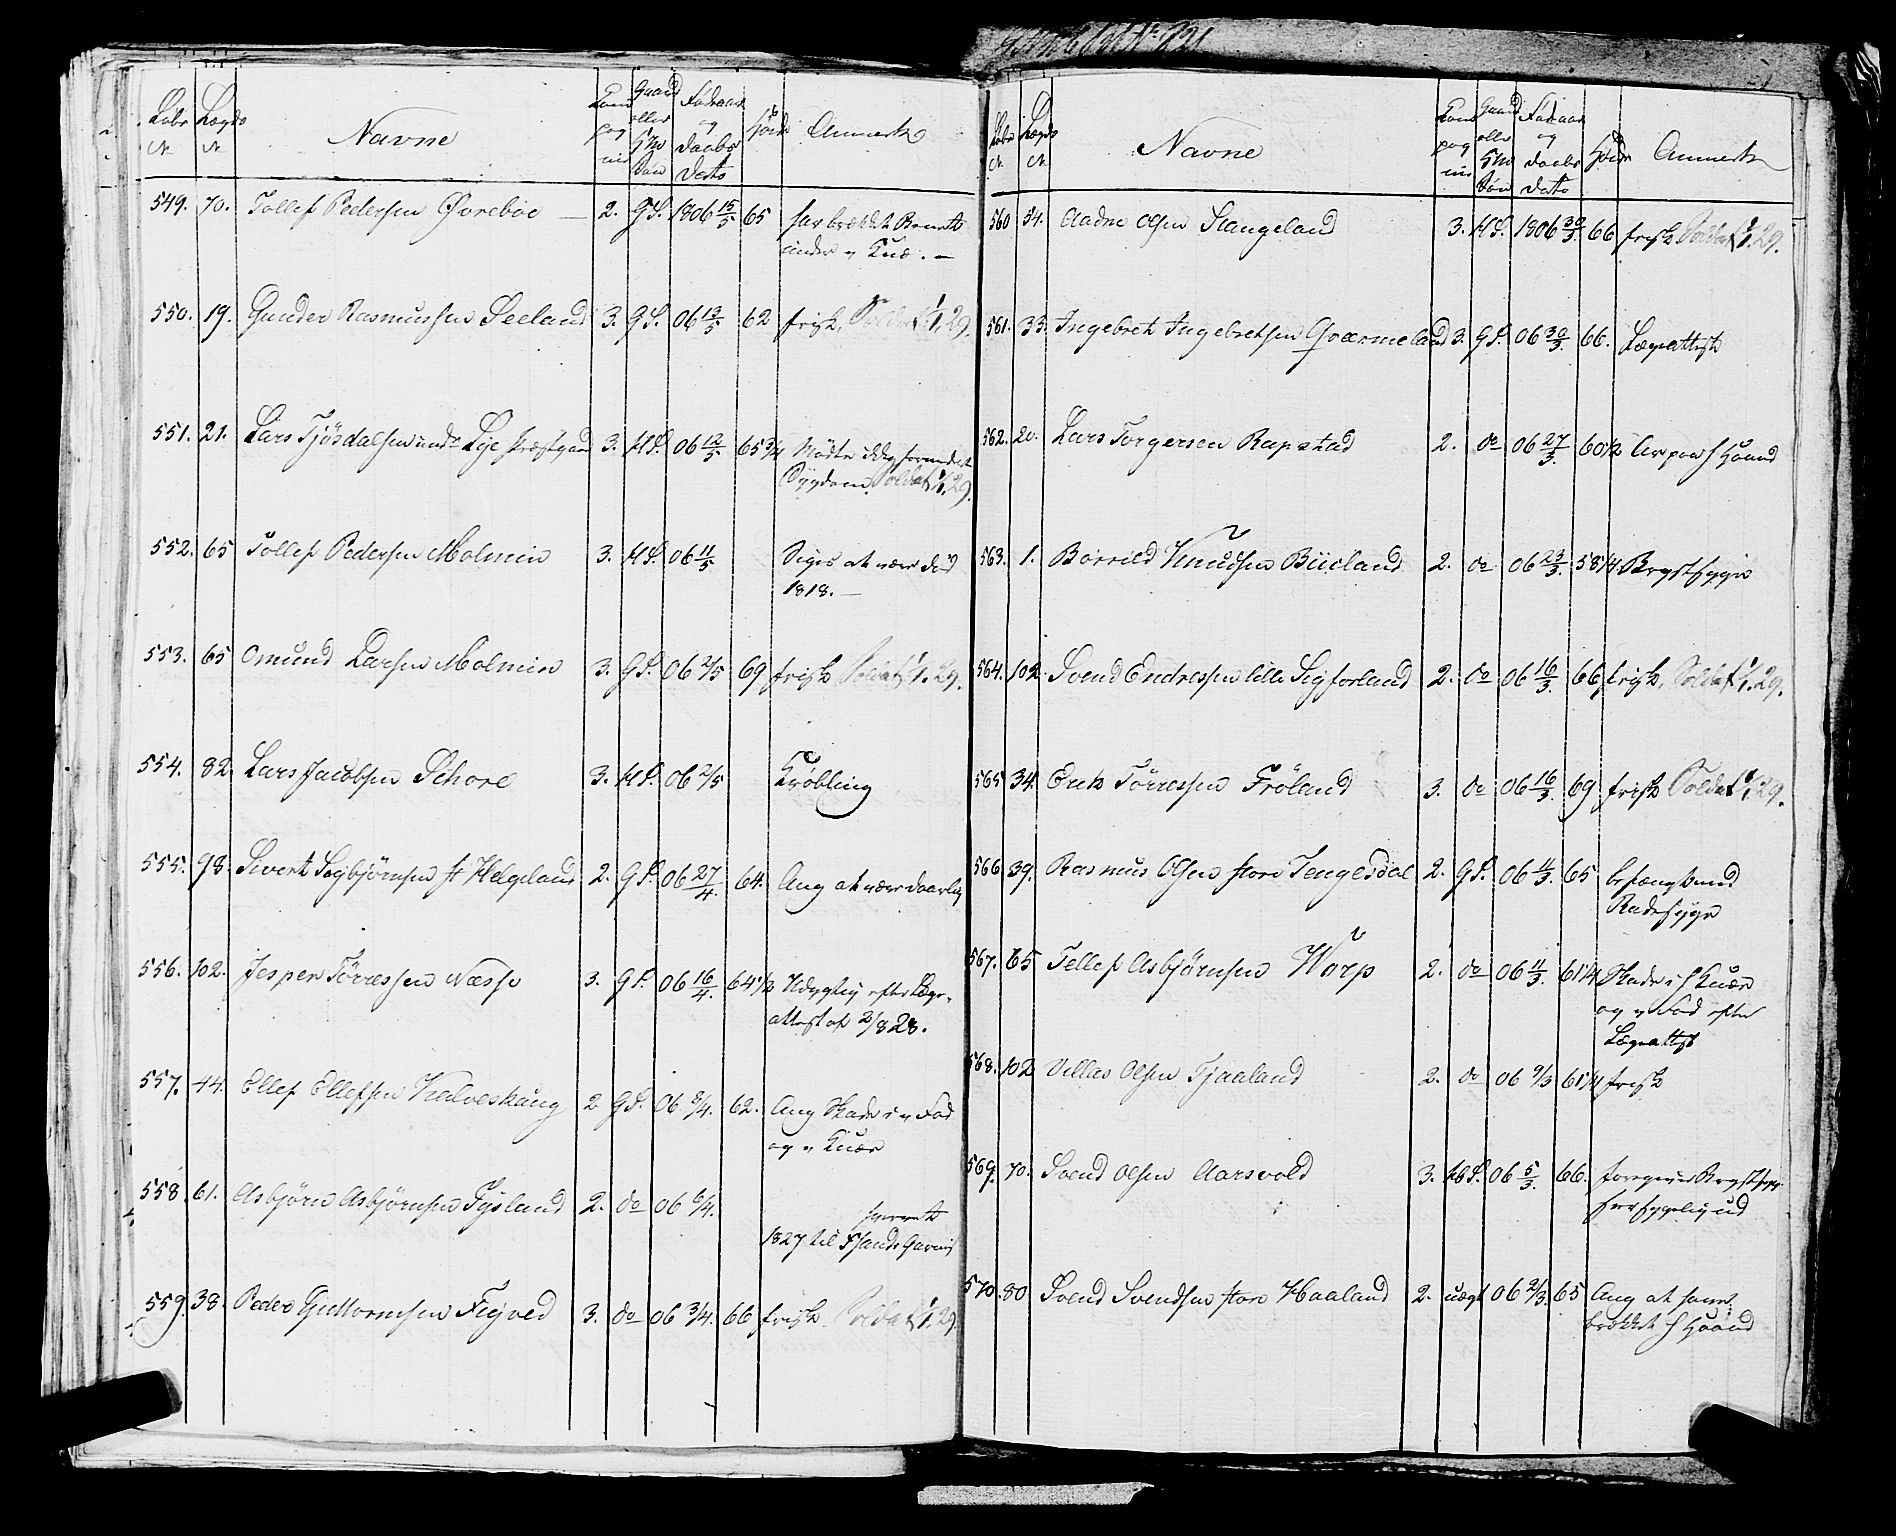 Løbe N Lægds N Navne Com pag nie Gaard eller Hus Søn Fødeaar og Daabs Dato Høide Anmerk
549. 70. Tollef Pedersen Øvrebøe 2. G S. 1806 15/5 65 har brækket Benet
under v Knæ. —
550. 19. Gunder Rasmussen Seeland 3. G S. 06 13/5 62 frisk. Soldat 1/1.29.
551. 21. Lars Tjøsdalsen unde Lye Præstgaar 3. H S. 06 12/5 65 3/4 Mødte ikke formedelst
Sygdom. Soldat 1/1.29.
552. 65 Tollef Pedersen Molmein 3. H S. 06 11/5 Siges at være død
1818. —
553. 65 Omund Larsen Molmein 3. G S. 06 2/5 69 frisk Soldat 1/1.29.
554. 82. Lars Jacobsen Schore 3. H S. 06 2/5 Krøbling
555. 98. Sivert Sigbjørnsen st Helgeland 2. G S. 06 27/4. 64. Ang at være daarlig
556. 102. Jesper Tørressen Næsse 3. G S. 06 16/4. 64 1/2 Udygtig efter Læge-
attest af 2/8 28.
557. 44. Ellef Ellefsen Kalveskaug 2 G S. 06 6/4. 62. Ang Skade i v Fod
og v Knæe
558. 61. Asbjørn Asbjørnsen Tysland 2. do 06 6/4.
hvervet
1827 til Fsands Garnis
559. 38. Peder Guttormsen Figved 3. do 06 3/4. 66 frisk Soldat 1/1.29.
Løbe N Lægds N Navne Com pag nie Gaard eller Hus Søn Fødeaar og Daabs Dato Høide Anmerk
560 54. Aadne Olsen Stangeland 3. H S. 1806 30/3. 66 frisk Soldat 1/1.29.
561. 33. Ingebret Ingebretsen Qværneland 3. G S. 06 30/3. 66. Lægeattest
562. 20. Lars Torgersen Rapstad 2. do 06 27/3. 60 1/2 Ar paa h Haand
563. 1. Borrild Knudsen Biieland 2. do 06 23/3. 58 1/4. Brystsyge
564. 102. Svend Endresen lille Sigforland 2. do 06 16/3. 66 frisk. Soldat 1/1.29.
565 34. Erik Tørressen Frøland 3. do 06 16/3. 69 frisk Soldat 1/1.29.
566 39. Rasmus Olsen store Tengesdal 2. G S. 06 11/3. 65 befængt med
Radesyge
567. 65 Tellef Asbjørnsen Worp 2. do 06 11/3. 61 1/4 Skade i h Knæe
og v Fod efter
Lægeattest
568. 102 Villas Olsen Tjaaland 2. do 06 9/3 61 1/4 frisk
569. 70. Svend Olsen Aarsvold 3. H S. 06 5/3. 66. foregiver Brystsyge
seer sygelig ud
570. 80 Svend Svendsen store Haaland 2. uægt 06 2/3. 65 Ang at have
brækket h Haand